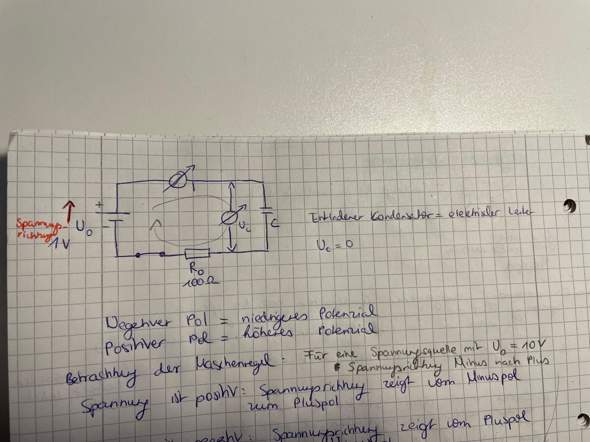 +
Spannungs-
richtung
1V
U₀
-
I
U_c
C
R₀
100Ω
Entladener Kondensator = elektrischer Leiter
U_c = 0
Negativer Pol = niedrigeres Potenzial
Positiver Pol = höheres Potenzial
Betrachtung der Maschenregel: Für eine Spannungsquelle mit U₀ = 10V
Spannungsrichtung Minus nach Plus
Spannung ist positiv: Spannungsrichtung zeigt vom Minuspol
zum Pluspol
Spannungsrichtung zeigt vom Pluspol